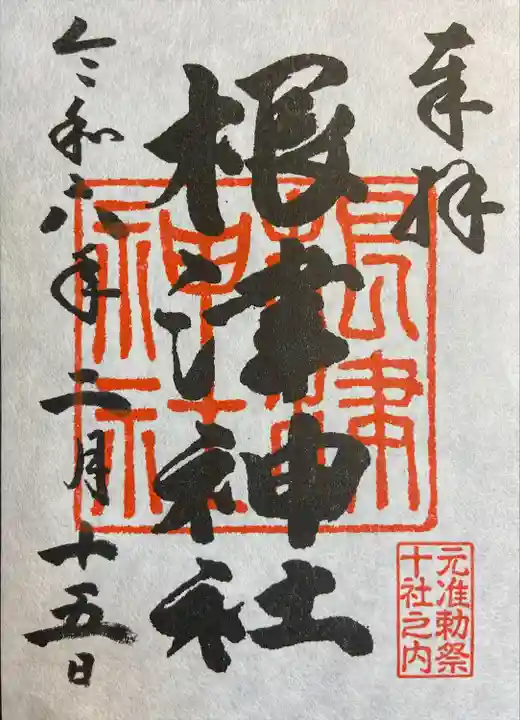 奉拝
根津神社
根津
神社
元准勅祭
十社之内
令和六年二月十五日